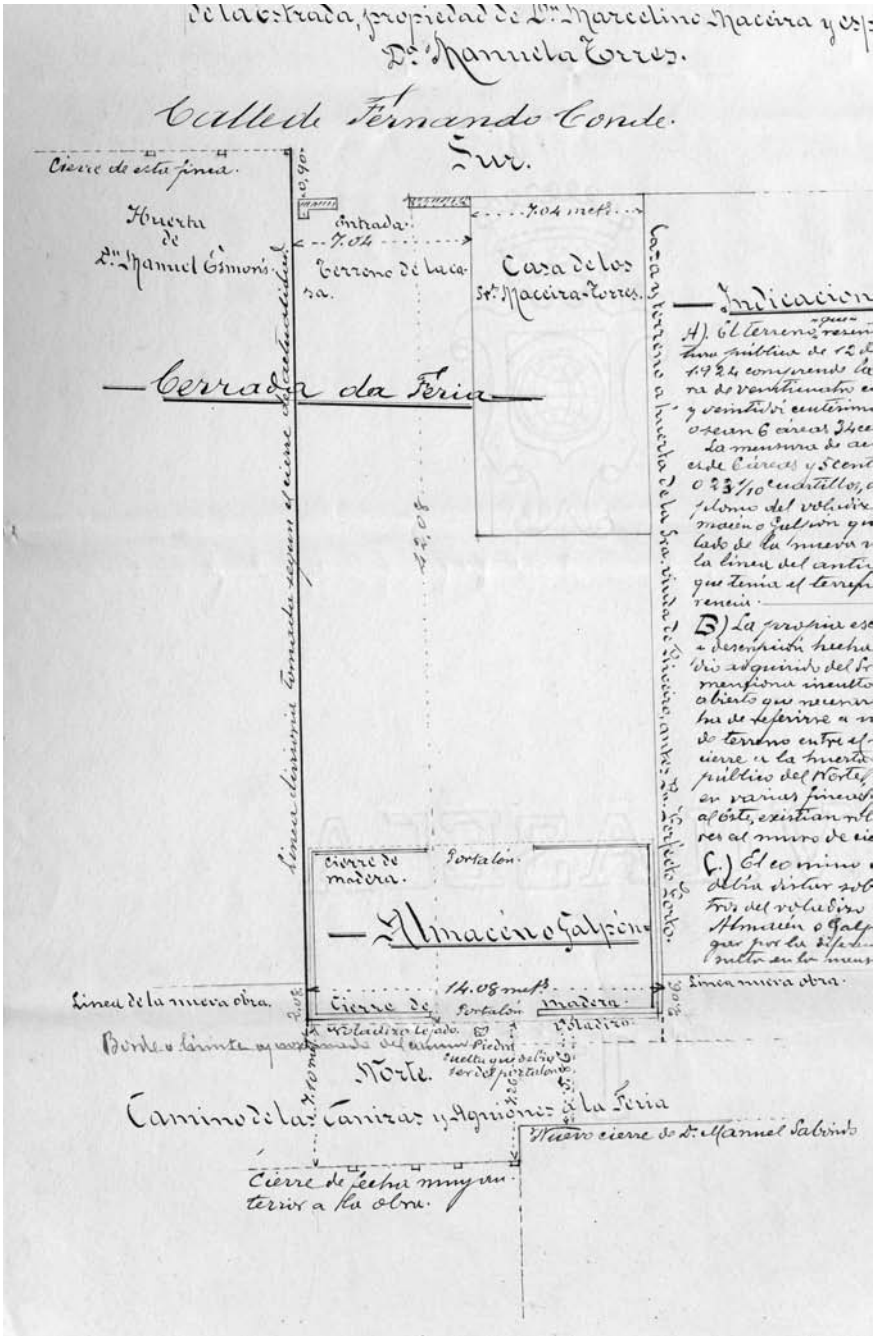 de la Estrada, propiedad de Dn. Marcelino Maceira y esp
Dª Manuela Torres.
Calle de Fernando Conde.
Sur.
Cierre de esta finca.
0,90
Huerta
de
Dn. Manuel Esmoris.
Entrada.
7.04
Terreno de la ca-
sa.
7.04 mets.
Casa de los
Srs. Maceira-Torres.
Cerrada da Feria
Línea divisoria tomada según el cierre de actualidad.
42.08
Casa y terreno a huerta de la Sra. viuda de antes Dn. Perfecto Porto.
Indicacion
A). El terreno, que
tura pública de 12 d
1924 comprende la
ra de veinticuatro
y veintidos centésim
o sean 6 áreas 34 ce
La mensura de ac
es de 6 áreas y 5 cent
o 23 1/10 cuartillos,
plomo del voladizo
macén o Galpón qu
lado de la nueva
la línea del anti
que tenía el terren
rencia.
B) La propia es
descripción hecha
dio adquirido del Sr
menciona inculto
abierto que necesar
ha de referirse a
de terreno entre el
cierre a la huerta
público del Norte,
en varias fincas
al Este, existían
res al muro de cie
C.) El camino
debía distar sob
tros del voladizo
Almacén o Galp
gar por la diferen
sulta en la mens
cierre de
madera.
Portalón.
Almacén o Galpón
14.08 mets.
Línea de la nueva obra.
2.08
Cierre de
Portalón
madera.
Línea nueva obra.
Voladizo tejado.
Voladizo.
Borde o límite aproximado del camino
Piedra
suelta que debió
ser del portalón
Norte.
7.10 mets
Camino de las Canizas y Aguiones a la Feria
Nuevo cierre de D. Manuel Saborido
Cierre de fecha muy an-
terior a la obra.